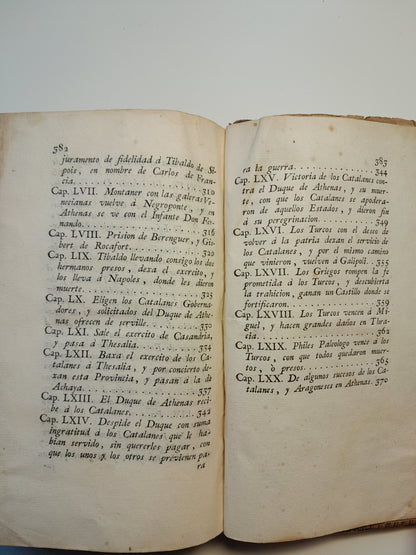 382
juramento de fidelidad á Tibaldo de Se-
pois, en nombre de Carlos de Fran-
cia. 310
Cap. LVII. Montaner con las galeras Ve-
necianas vuelve á Negroponte, y en
Athenas se ve con el Infante Don Fer-
nando. 316
Cap. LVIII. Prision de Berenguer, y Gis-
bert de Rocafort. 320
Cap. LIX. Tibaldo llevando consigo los dos
hermanos presos, dexa el exercito, y
los lleva á Napoles, donde les dieron
muerte. 325
Cap. LX. Eligen los Catalanes Goberna-
dores, y solicitados del Duque de Athe-
nas ofrecen de serville. 330
Cap. LXI. Sale el exercito de Casandria,
y pasa á Thesalia. 334
Cap. LXII. Baxa el exercito de los Ca-
talanes á Thesalia, y por concierto de-
xan esta Provincia, y pasan á la de
Achaya. 337
Cap. LXIII. El Duque de Athenas reci-
be á los Catalanes. 342
Cap. LXIV. Despide el Duque con suma
ingratitud á los Catalanes que le ha-
bian servido, sin quererles pagar, con
que los unos y los otros se previenen pa-
ra
383
ra la guerra. 344
Cap. LXV. Victoria de los Catalanes con-
tra el Duque de Athenas, y su muer-
te, con que los Catalanes se apodera-
ron de aquellos Estados, y dieron fin
á su peregrinacion. 349
Cap. LXVI. Los Turcos con el deseo de
volver á la patria dexan el servicio de
los Catalanes, y por el mismo camino
que vinieron, vuelven á Galipoli. 355
Cap. LXVII. Los Griegos rompen la fe
prometida á los Turcos, y descubierta
la trahicion, ganan un Castillo donde se
fortificaron. 359
Cap. LXVIII. Los Turcos vencen á Mi-
guel, y hacen grandes daños en Thra-
cia. 362
Cap. LXIX. Philes Paleologo vence á los
Turcos, con que todos quedaron muer-
tos, ò presos. 365
Cap. LXX. De algunos sucesos de los Ca-
talanes, y Aragoneses en Athenas. 370